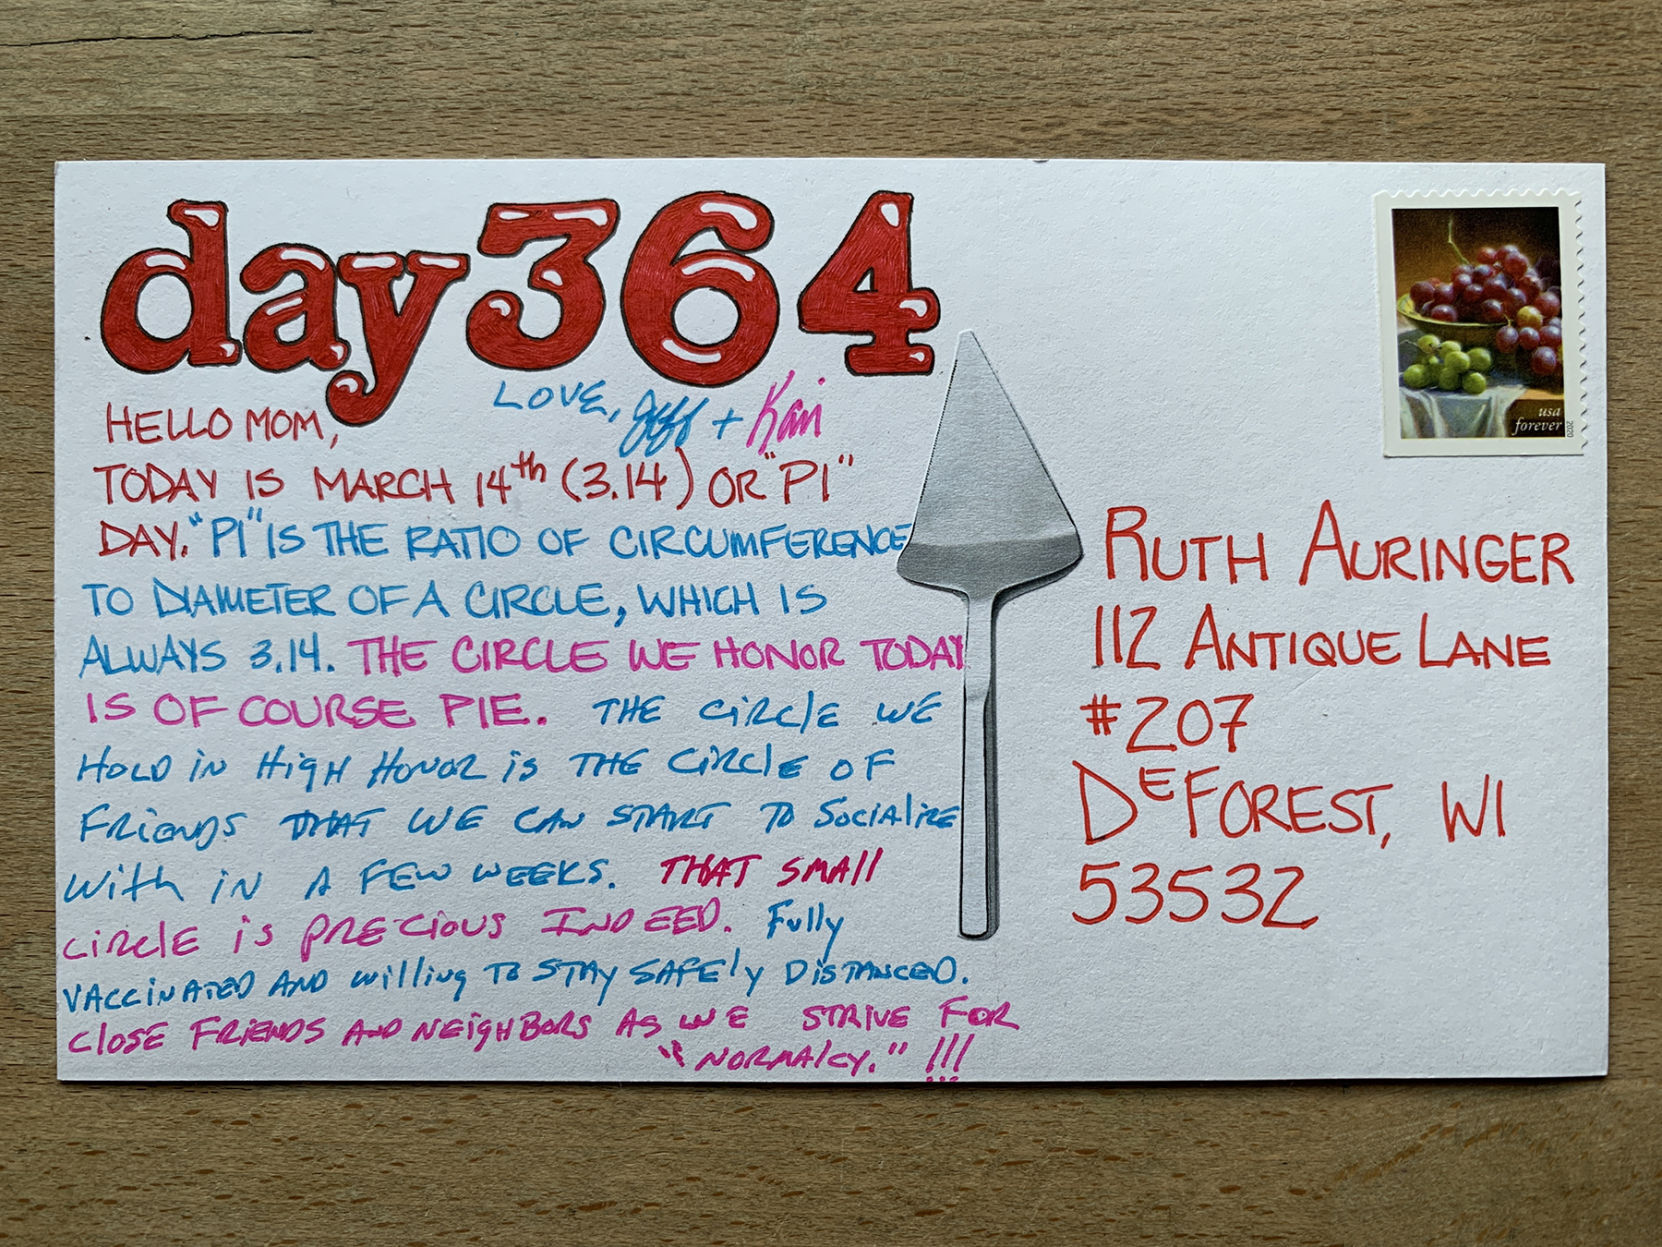 day 364
LOVE, Jeff + Kari
HELLO MOM,
TODAY IS MARCH 14th (3.14) OR "PI"
DAY. "PI" IS THE RATIO OF CIRCUMFERENCE
TO DIAMETER OF A CIRCLE, WHICH IS
ALWAYS 3.14. THE CIRCLE WE HONOR TODAY
IS OF COURSE PIE. THE CIRClE WE
HOLD iN HigH HONOR iS THE CiRClE OF
FRiENDS THAT WE CAN START TO SOCiAliZE
WiTh iN A FEW WEEKS. THAT SMAll
CiRClE iS PRECiOUS INDEED. Fully
VACCiNATED AND Willing TO STAY SAFEly DiSTANCED.
ClOSE FRiENDS AND NEigHBORS AS WE STRIVE FOR
"NORMAlCY." !!!
usa
forever
2020
RUTH AURINGER
112 ANTIQUE LANE
#207
DEFOREST, WI
53532